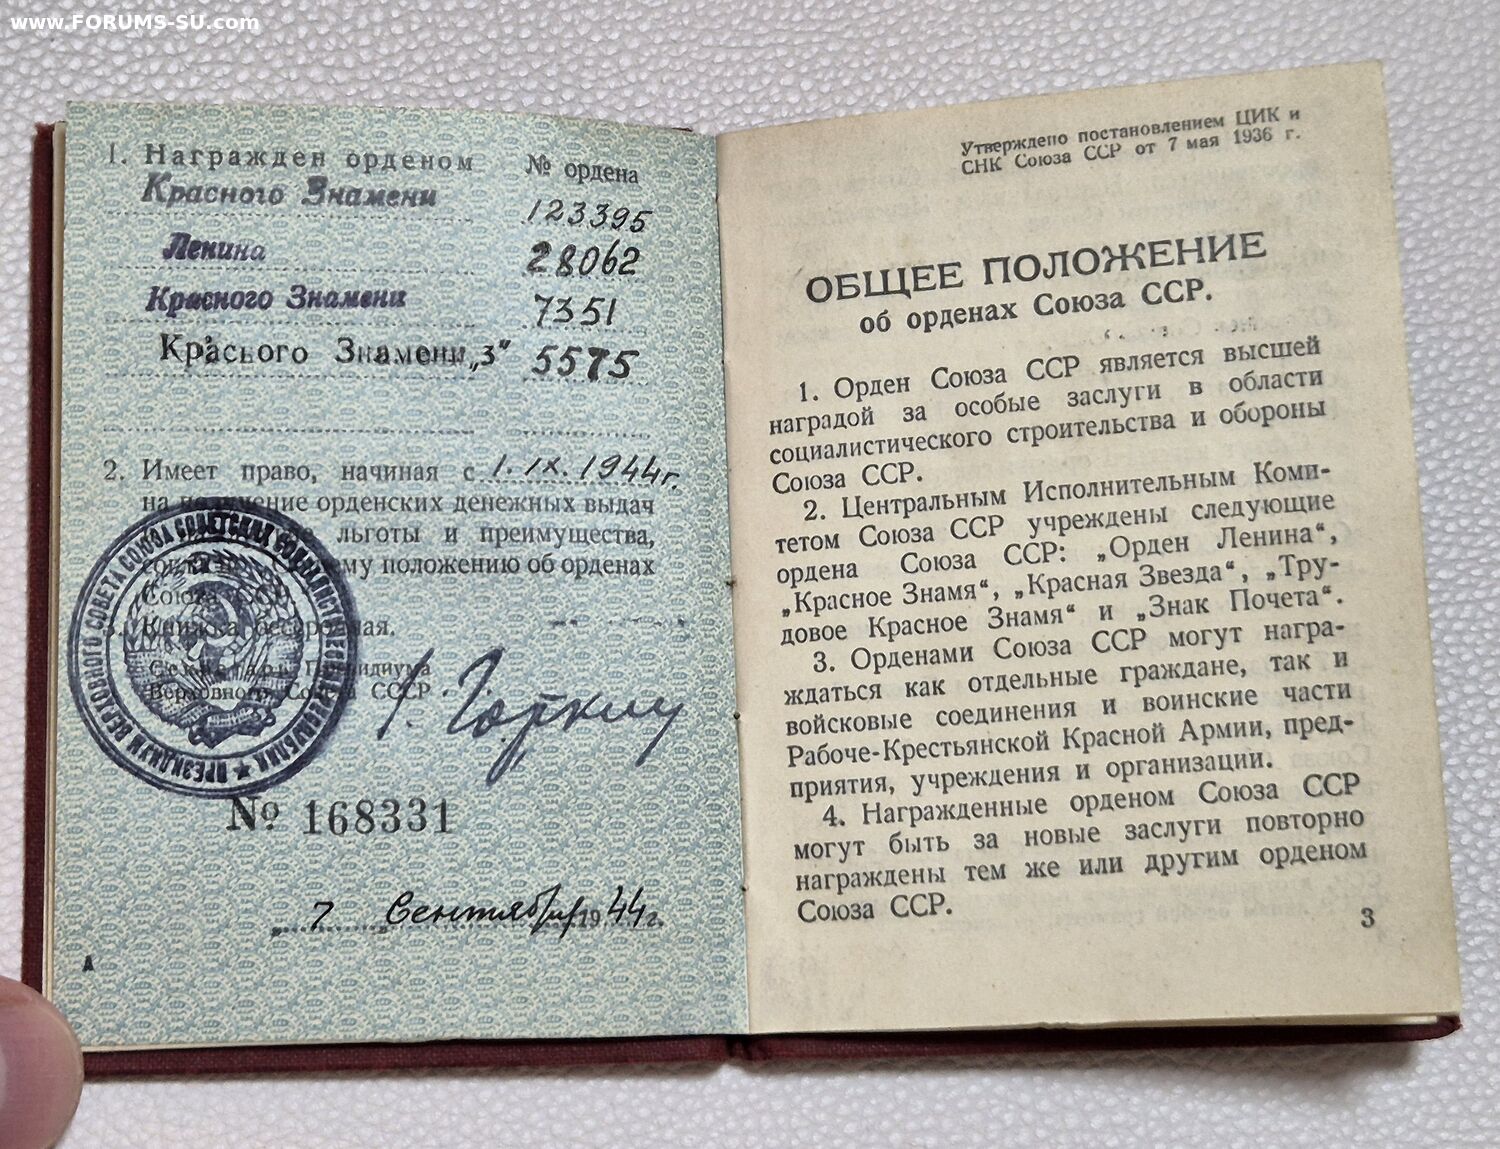 www.FORUMS-SU.com
1. Награжден орденом № ордена
Красного Знамени 123395
Ленина 28062
Красного Знамени 7351
Красного Знамени „3" 5575
2. Имеет право, начиная с 1.IX.1944г.
на получение орденских денежных выдач
льготы и преимущества,
согласно Общему положению об орденах
Союза ССР.
3. Книжка бессрочная.
Секретарь Президиума
Верховного Совета СССР А. Горкин
ПРЕЗИДИУМ ВЕРХОВНОГО СОВЕТА СОЮЗА СОВЕТСКИХ СОЦИАЛИСТИЧЕСКИХ РЕСПУБЛИК ★
№ 168331
„ 7 „ Сентября 1944г.
А
Утверждено постановлением ЦИК и
СНК Союза ССР от 7 мая 1936 г.
ОБЩЕЕ ПОЛОЖЕНИЕ
об орденах Союза ССР.
1. Орден Союза ССР является высшей
наградой за особые заслуги в области
социалистического строительства и обороны
Союза ССР.
2. Центральным Исполнительным Коми-
тетом Союза ССР учреждены следующие
ордена Союза ССР: „Орден Ленина“,
„Красное Знамя“, „Красная Звезда“, „Тру-
довое Красное Знамя“ и „Знак Почета“.
3. Орденами Союза ССР могут награ-
ждаться как отдельные граждане, так и
войсковые соединения и воинские части
Рабоче-Крестьянской Красной Армии, пред-
приятия, учреждения и организации.
4. Награжденные орденом Союза ССР
могут быть за новые заслуги повторно
награждены тем же или другим орденом
Союза ССР.
3